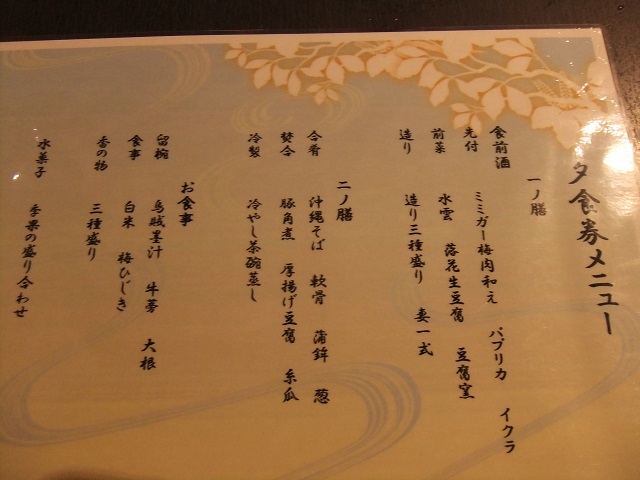 夕食券メニュー
一ノ膳
食前酒
先付 ミミガー梅肉和え パプリカ イクラ
前菜 水雲 落花生豆腐 豆腐窯
造り 造り三種盛り 妻一式
二ノ膳
合肴 沖縄そば 軟骨 蒲鉾 葱
焚合 豚角煮 厚揚げ豆腐 糸瓜
冷製 冷やし茶碗蒸し
お食事
留椀 烏賊墨汁 牛蒡 大根
食事 白米 梅ひじき
香の物 三種盛り
水菓子 季果の盛り合わせ